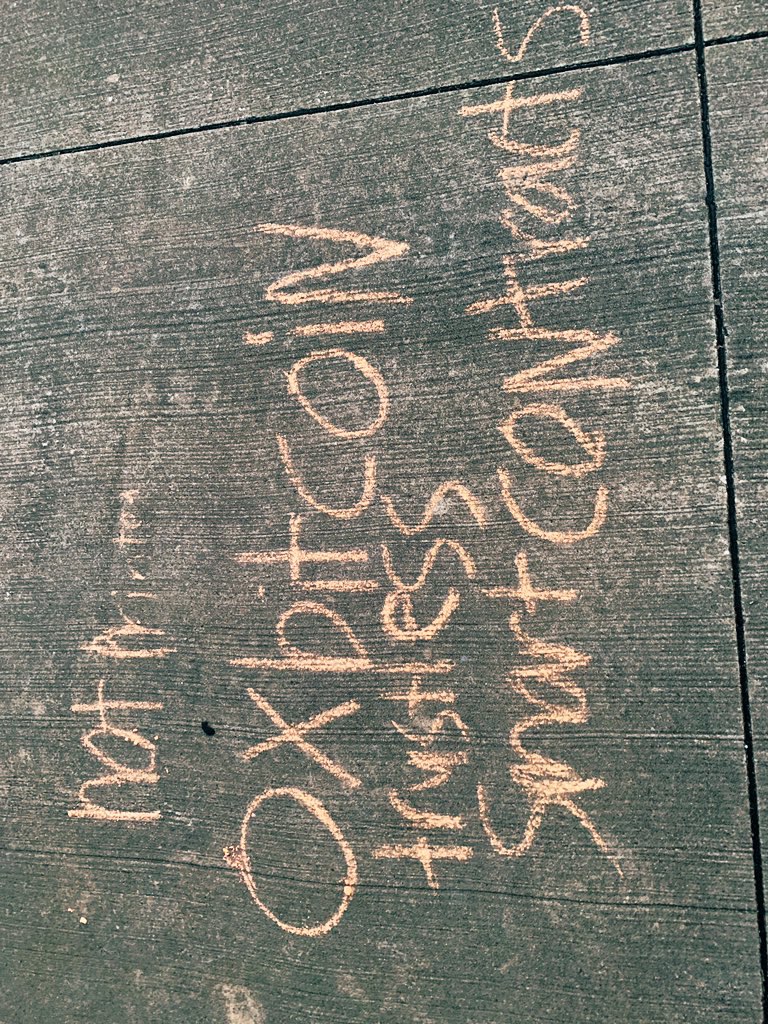 not
0XbiTCOiN
trustless
Smart CONtracts